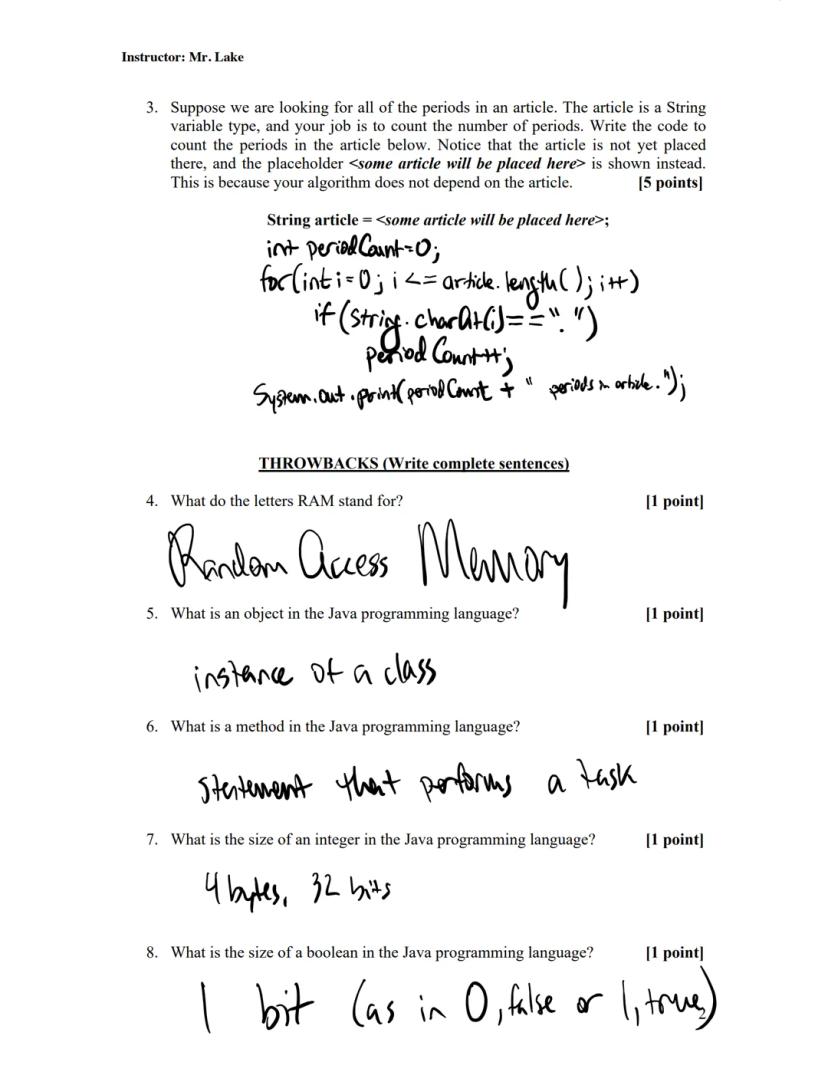 Instructor: Mr. Lake
3. Suppose we are looking for all of the periods in an article. The article is a String
variable type, and your job is to count the number of periods. Write the code to
count the periods in the article below. Notice that the article is not yet placed
there, and the placeholder <some article will be placed here> is shown instead.
This is because your algorithm does not depend on the article. [5 points]
String article = <some article will be placed here>;
int periodCount=0;
for(int i=0; i <= article.length(); i++)
if (String.charAt(i)==".")
periodCount++;
System.out.print(periodCount + " periods in article.");
THROWBACKS (Write complete sentences)
4. What do the letters RAM stand for? [1 point]
Random Access Memory
5. What is an object in the Java programming language? [1 point]
instance of a class
6. What is a method in the Java programming language? [1 point]
statement that performs a task
7. What is the size of an integer in the Java programming language? [1 point]
4 bytes, 32 bits
8. What is the size of a boolean in the Java programming language? [1 point]
1 bit (as in 0, false or 1, true)
2